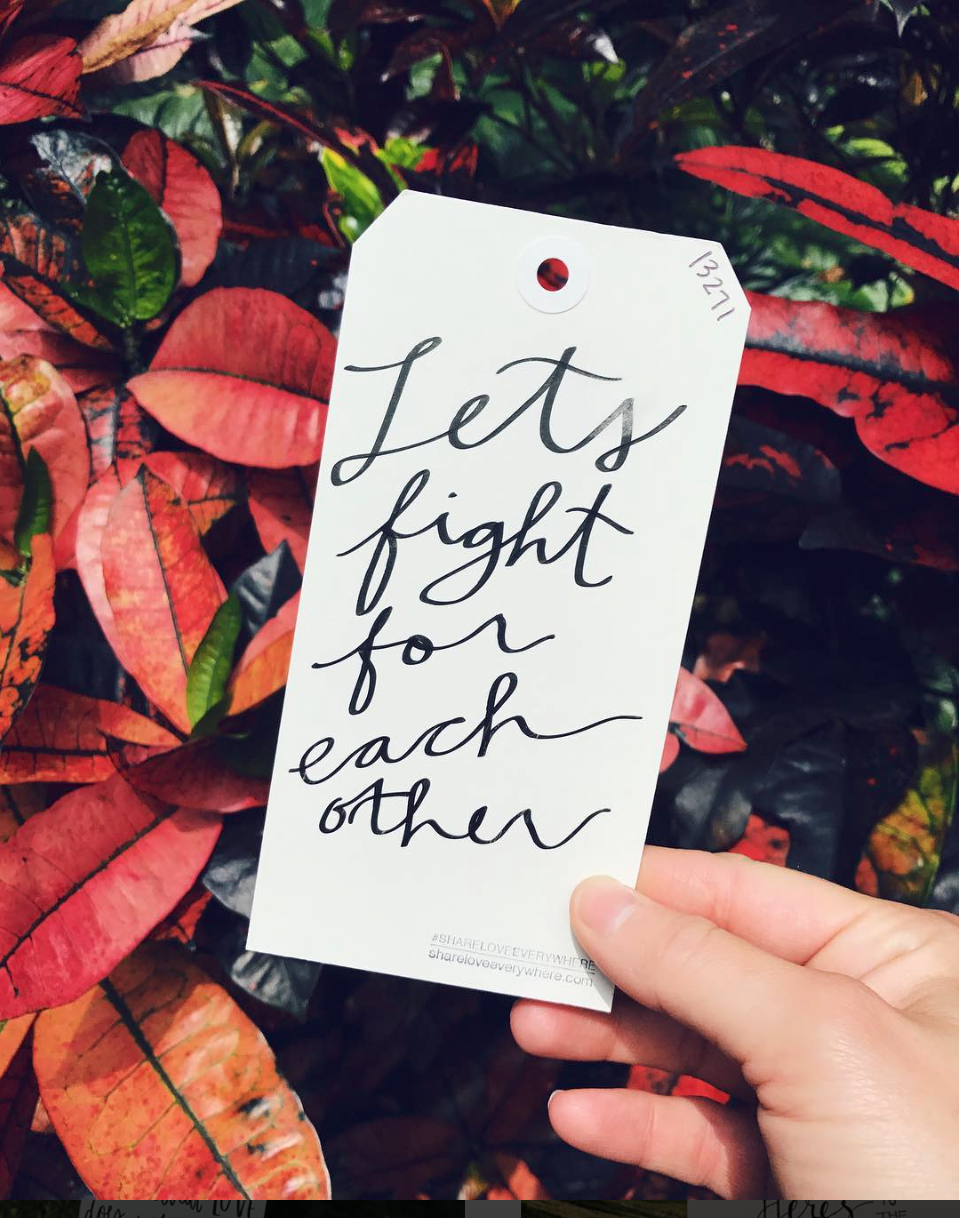 13271
Lets
fight
for
each
other
#SHARELOVEEVERYWHERE
shareloveeverywhere.com
LOVE
Heres
THE